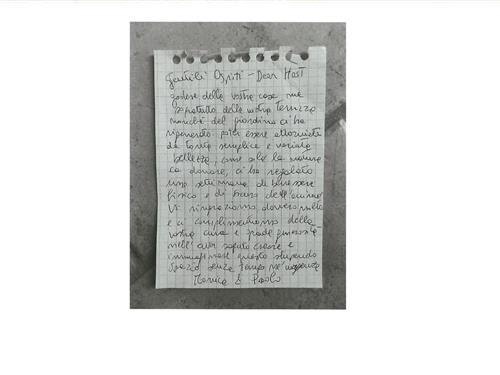 Gentili Ospiti - Dear Host
godere della vostra casa ma
soprattutto della vostra terrazza
nonché del giardino ci ha
rigenerato. poter essere
da tanta semplice e variata
bellezza, come solo la natura
sa donare, ci ha regalato
una settimana di benessere
fisico e di pace dell'anima
Vi ringraziamo davvero molto
e ci complimentiamo della
vostra cura e grande generosità
nell'aver saputo creare e
immaginare questo stupendo
spazio senza tempo
Monica & Paolo